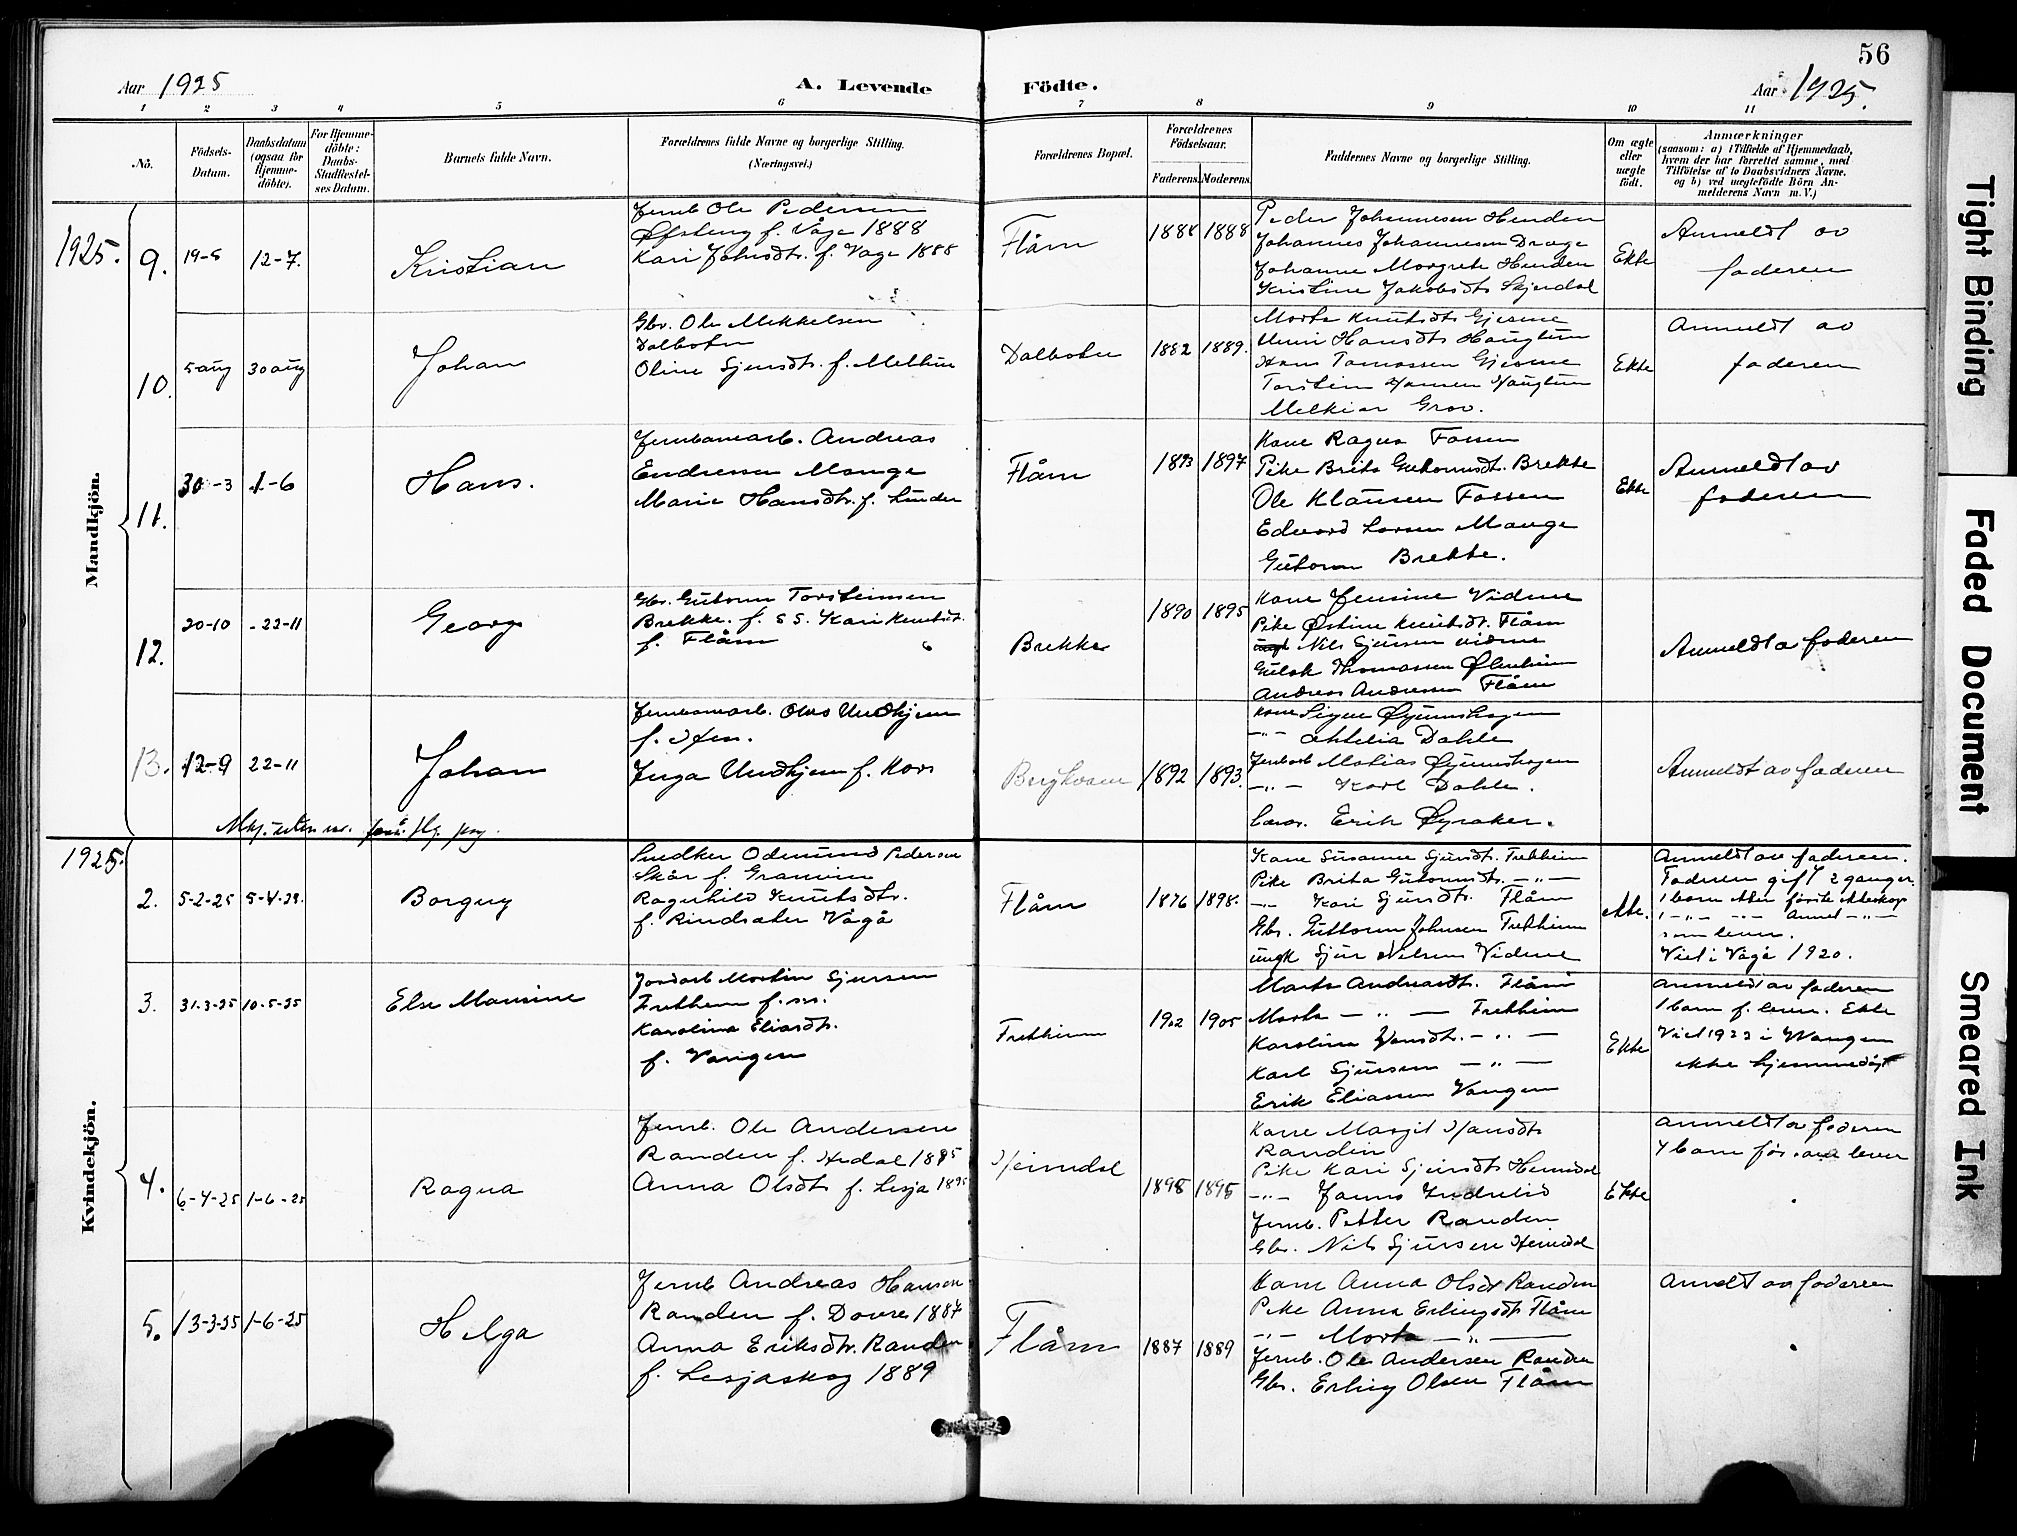 56
Aar 1925
A. Levende
Födte.
Aar 1925.
1 2 3 4 5 6 7 8 9 10 11
No.
Födsels-Datum.
Daabsdatum (ogsaa for Hjemme-döbte).
For Hjemme-döbte: Daabs-Stadfæstel-ses Datum.
Barnets fulde Navn.
Forældrenes fulde Navne og borgerlige Stilling. (Næringsvei.)
Forældrenes Bopæl.
Forældrenes Födselsaar.
Faderens. Moderens.
Faddernes Navne og borgerlige Stilling.
Om ægte eller uægte födt.
Anmærkninger
(saasom: a) i Tilfælde af Hjemmedaab,
hvem der har forrettet samme, med
Tilföielse af to Daabsvidners Navne.
og b) ved uægtefödte Börn An-
melderens Navn m. V.)
Mandkjön.
1925.
9. 19-5 12-7. Kristian
Jernb Ole Pedersen
Øfsteng f. Våge 1888
Kari Johnsdt. f. Vage 1888
Flåm 1888 1888
Peder Johannesen Henden
Johannes Johannesen Drage
Johanne Margrete Henden
Kristine Jakobsdt. Skjerdal
Ekte
Anmeldt av
faderen
10. 5 aug 30 aug Johan
Gbr. Ole Mikkelsen
Dalbotn
Oline Sjursdt. f. Melhus
Dalbotn 1882 1889.
Marta Knutsdt. Gjesme
Unni Hansdt. Haugtun
Hans Tomassen Gjesme
Torstein Hansen Haugtun
Melkior Grov.
Ekte
Anmeldt av
faderen
11. 30-3 1-6 Hans.
Jernbanearb. Andreas
Endresen Mauge
Marie Hansdt. f. Linder
Flåm 1893 1897
Kone Ragna Fossen
Pike Brita Guttormsdt. Brekke
Ole Klausen Fossen
Edvard Larsen Mauge
Guttorm Brekke.
Ekte
Anmeldt av
faderen
12. 20-10 -22-11 Georg
Gbr. Guttorm Torsteinsen
Brekke. f. s s. Kari Knutsdt.
f. Flåm
Brekke 1890 1895
Kone Jensine Vidme
Pike Østine Knutsdt. Flåm
Nils Sjursen Vidme
Gulak Thomassen Ølnheim
Andreas Andressen Flåm
Anmeldt a faderen
13. 12-9 22-11 Johan
Jernbanearb. Olav Undhjem
f.
Inga Undhjem f. Kors
Berghosen 1892 1893.
Kone Signe Øyumshagen
-"- Dahle
Jernbarb Matias Øyumshagen
-"- Karl Dahle.
Erik Øyraker.
Anmeldt av faderen
Kvindekjön.
1925.
2. 5-2-25 5-4-25. Borgny
Snedker Odmund Pedersen
Skår f. Granvin
Ragnhild Knutsdtr.
f. Rindsæter Vågå
Flåm 1876 1898.
Kone Susanne Sjursdt. Fretheim
Pike Brita Guttormsdt. -"-
-"- Kari Sjursdt. Flåm
Gbr. Guttorm Johnsen Fretheim
ungk Sjur Nilsen Vidme
ekte.
Anmeldt av faderen.
Faderen gift 2 ganger.
1 barn etter første ekteskap
1 -"- -"- annet -"-
som lever.
Viet i Vågå 1920.
3. 31-3-25 10-5-25 Else Marine
Jordarb Martin Sjursen
Frethem f. ss.
Karoline Eliasdt.
f. Vangen
Fretheim 1902 1905
Marta Andreasdt. Flåm
Marta -"- Fretheim
Karoline Hansdt. -"-
Karl Sjursen -"-
Erik Eliassen Vangen
Ekte
Anmeldt av faderen
1 barn f. lever. Ekte
Viet 1923 i Vangen
ikke hjemmedøpt
4. 6-4-25 1-6-25 Ragna
Jernb. Ole Andersen
Randen f. Hedal 1895
Anna Olsdt. f. Lesja 1895
Heimdal 1898 1895
Kone Margit Hansdt.
Randen
Pike Kari Sjursdt. Heimdal
-"-
Jernb. Petter Randen
Gbr. Nils Sjursen Heimdal
Ekte
Anmeldt av faderen
4 barn før
5. 13-3-25 1-6-25 Helga
Jernb Andreas Hansen
Randen f. Dovre 1887
Anna Eriksdtr. Randen
f. Lesjaskog 1889
Flåm 1887 1889
Kone Anna Olsdt Randen
Pike Anna Erlingsdt. Flåm
-"- Marta -"-
Jernb. Ole Andersen Randen
Gbr. Erling Olsen Flåm
Anmeldt av faderen
Tight Binding
Faded Document
Smeared Ink